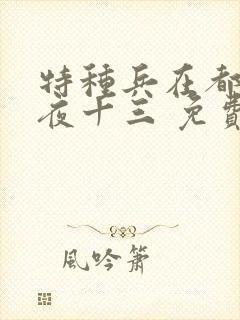 特種兵在都
夜十三 免費
風吟簫